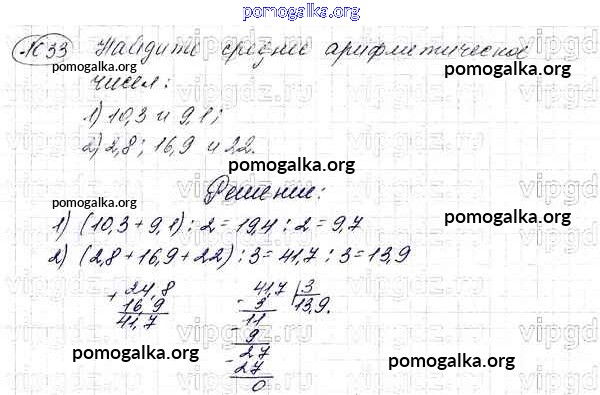 pomogalka.org
1033 Найдите среднее арифметическое
чисел:
1) 10,3 и 9,1;
2) 2,8; 16,9 и 22.
Решение:
1) (10,3 + 9,1) : 2 = 19,4 : 2 = 9,7
2) (2,8 + 16,9 + 22) : 3 = 41,7 : 3 = 13,9
+ 24,8
16,9
41,7
41,7 | 3
- 3 13,9.
11
- 9
27
- 27
0
pomogalka.org
pomogalka.org
pomogalka.org
pomogalka.org
pomogalka.org
pomogalka.org
pomogalka.org
vipgdz.ru